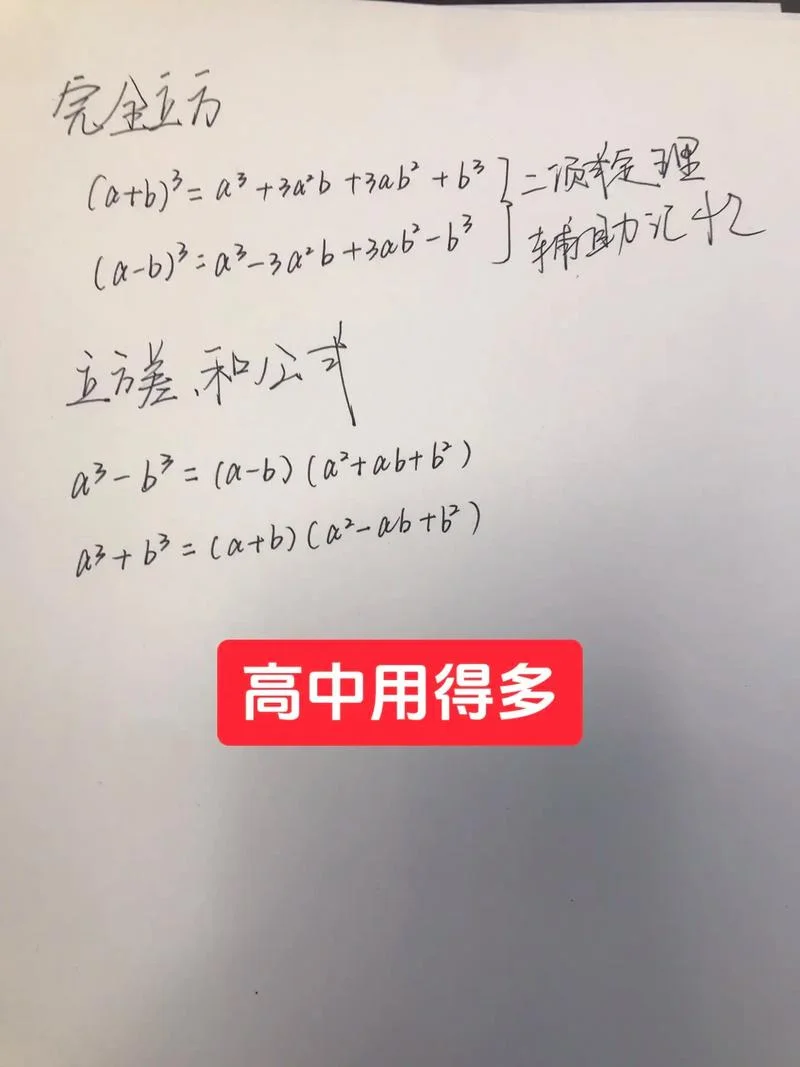 完全立方
(a+b)³=a³+3a²b+3ab²+b³
(a-b)³=a³-3a²b+3ab²-b³
二项式定理
辅助记忆
立方差、和公式
a³-b³=(a-b)(a²+ab+b²)
a³+b³=(a+b)(a²-ab+b²)
高中用得多